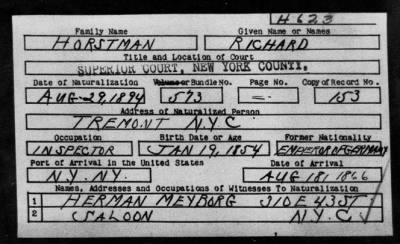 H 623
Family Name Given Name or Names
HORSTMAN RICHARD
Title and Location of Court
SUPERIOR COURT, NEW YORK COUNTY.
Date of Naturalization Volume or Bundle No. Page No. Copy of Record No.
AUG-29, 1894 573 — 153
Address of Naturalized Person
TREMONT N.Y.C.
Occupation Birth Date or Age Former Nationality
INSPECTOR JAN 19, 1854 EMPEROR OF GERMANY
Port of Arrival in the United States Date of Arrival
N.Y. N.Y. AUG 18, 1866
Names, Addresses and Occupations of Witnesses To Naturalization
1 HERMAN MEYBORG 43 ST
2 SALOON N.Y.C.